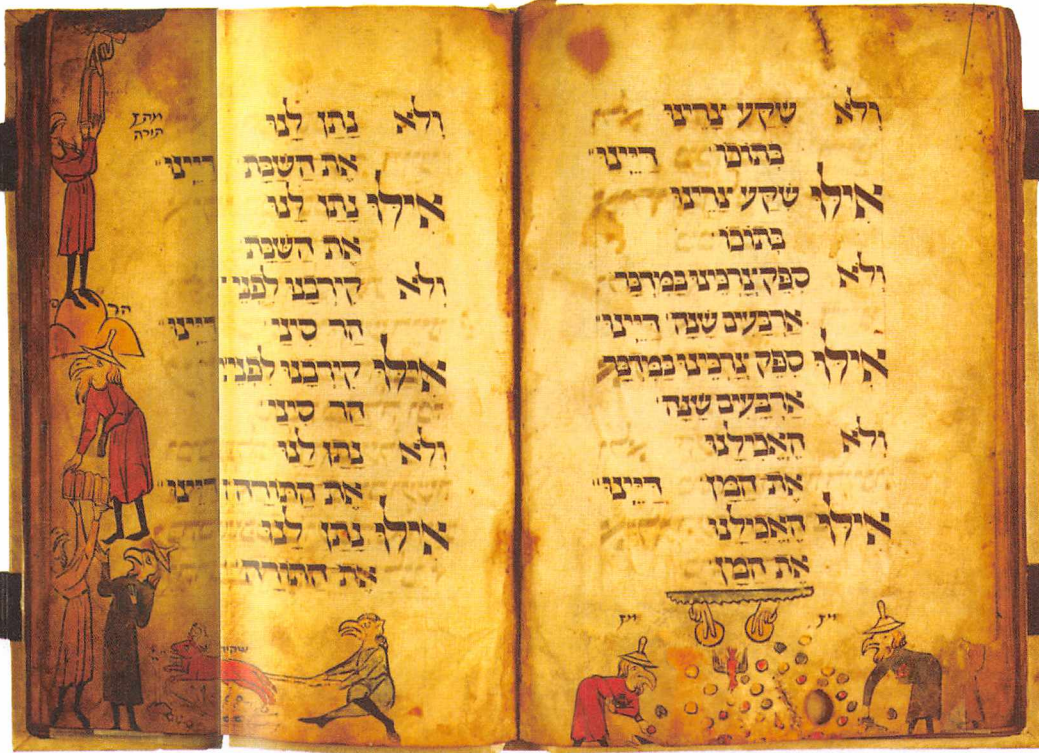 וְלֹא שִׁקַע צָרֵינוּ
בְּתוֹכוֹ דַיֵינוּ
אִילוּ שִׁקַע צָרֵינוּ
בְּתוֹכוֹ
וְלֹא סִפֵּק צָרְכֵינוּ בַּמִדְבָּר
אַרְבָּעִים שָׁנָה דַיֵינוּ
אִילוּ סִפֵּק צָרְכֵינוּ בַּמִדְבָּר
אַרְבָּעִים שָׁנָה
וְלֹא הֶאֱכִילָנוּ
אֶת הַמָּן דַיֵינוּ
אִילוּ הֶאֱכִילָנוּ
אֶת הַמָּן
וְלֹא נָתַן לָנוּ
אֶת הַשַׁבָּת דַיֵינוּ
אִילוּ נָתַן לָנוּ
אֶת הַשַׁבָּת
וְלֹא קֵירְבָנוּ לִפְנֵי
הַר סִינַי דַיֵינוּ
אִילוּ קֵירְבָנוּ לִפְנֵי
הַר סִינַי
וְלֹא נָתַן לָנוּ
אֶת הַתּוֹרָה דַיֵינוּ
אִילוּ נָתַן לָנוּ
אֶת הַתּוֹרָה
מתן
תורה
הר